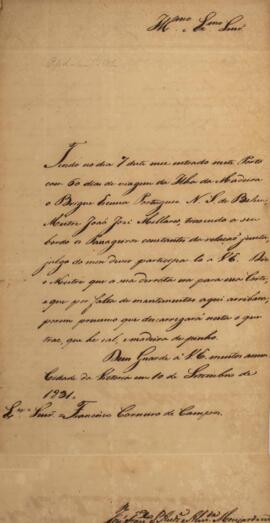 Illmo Exmo Senr
Tendo no dia 7 deste mez entrado neste Porto
com 60 dias de viagem da Ilha da Madeira
o Brigue Escuna Portuguez N. S. de Belem
Mestre José José Mellano, trazendo a seu
bordo os Passageiros constantes da relação junta
julgo do meu dever participa la a V.E. Diz
o Mestre que a sua derrota era para essa Corte,
e que por falta de mantimentos aqui arribara,
porem presumo que descarregará nesta o que
traz, que he sal, e madeira de pinho.
Deos Guarde a V.E. muitos annos
Cidade da Victoria em 10 de Setembro de
1831.
Senr Francisco Carneiro de Campos